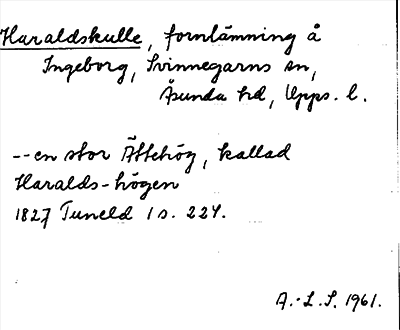 Haraldskulle, fornlämning å
Ingeborg, Svinnegarns sn,
Åsunda hd, Upps. l.
--en stor Ättehög, kallad
Haralds-högen
1827 Tuneld 1 s. 224.
A.-L.S. 1961.